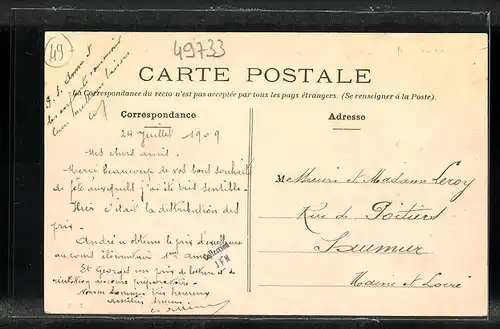 49
49733
CARTE POSTALE
La Correspondance du recto n'est pas acceptée par tous les pays étrangers. (Se renseigner à la Poste).
Correspondance
Adresse
24 Juillet 1909
Mes chers amis,
Merci beaucoup de vos bons souhaits
de fête auxquels j'ai été très sensible.
Hier c'était la distribution des
prix.
André a obtenu le prix d'excellence
au cours élémentaire 1ère année
Et Georges un prix de lecture et de
récitation au cours préparatoire.
Nous sommes très heureux
Collection
J F M
Monsieur et Madame Leroy
Rue de Poitiers
Saumur
Maine et Loire